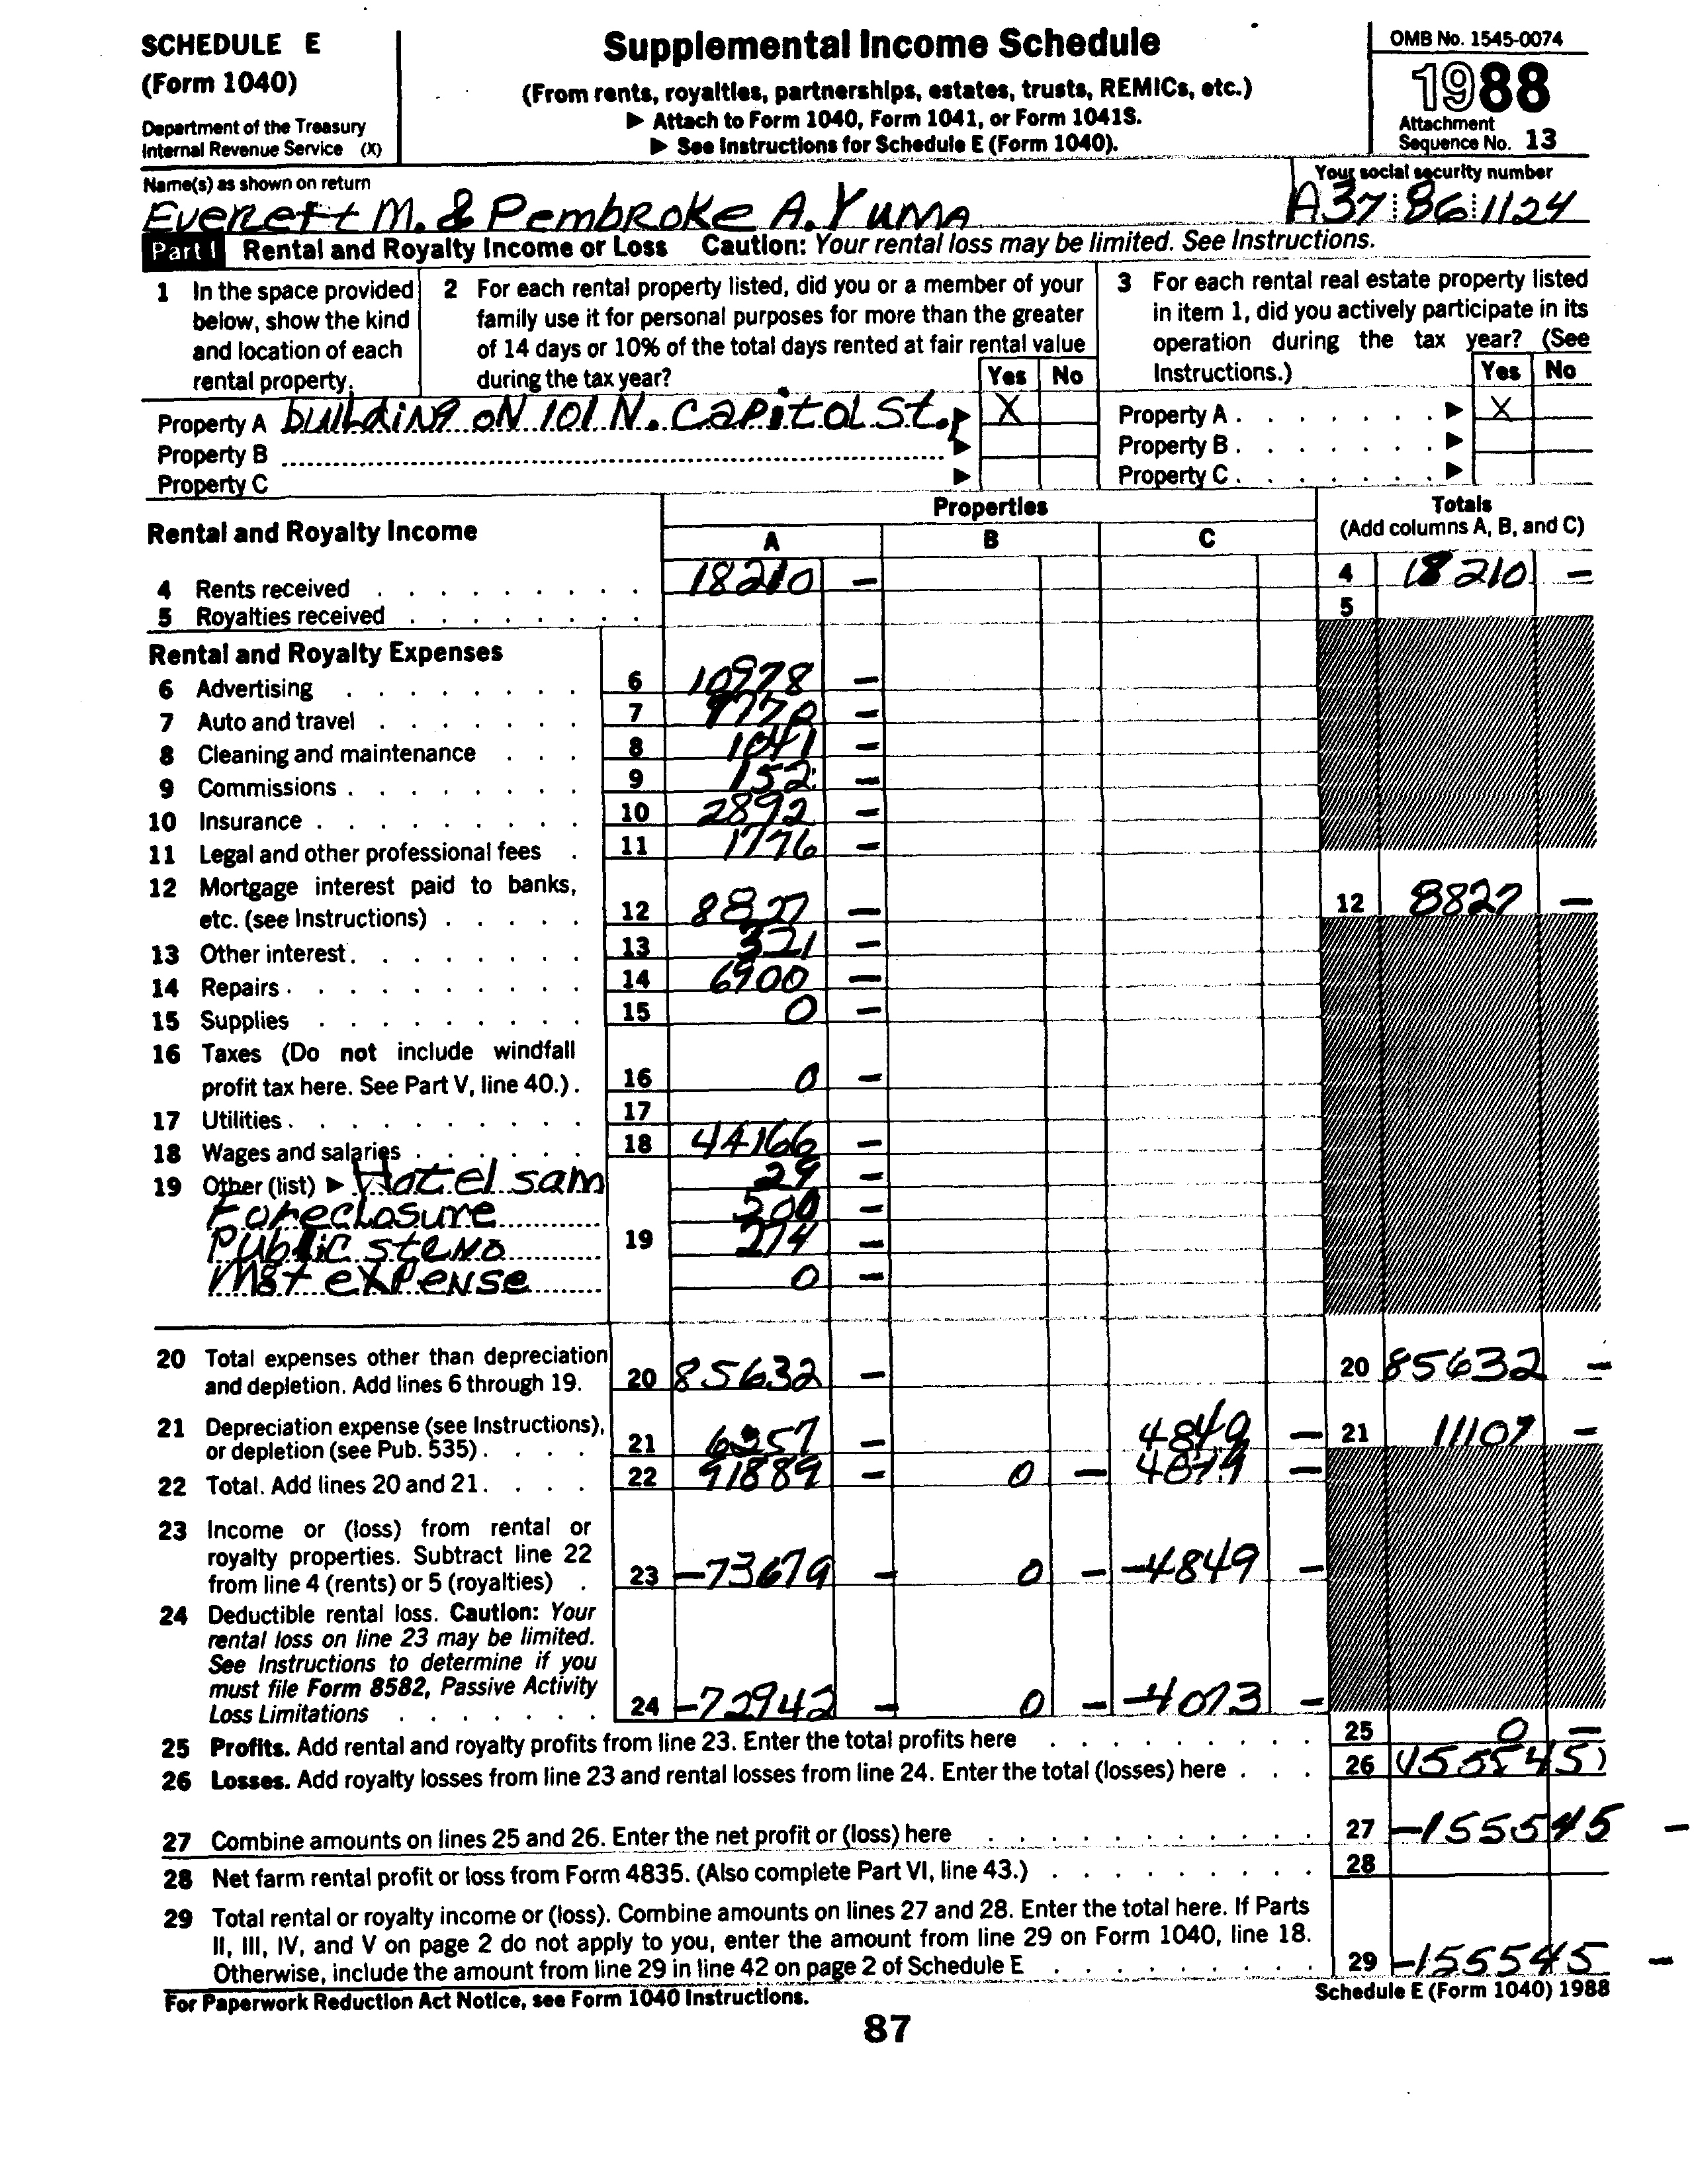 SCHEDULE E
(Form 1040)
Department of the Treasury
Internal Revenue Service (X)
Supplemental Income Schedule
(From rents, royalties, partnerships, estates, trusts, REMICs, etc.)
▶ Attach to Form 1040, Form 1041, or Form 1041S.
▶ See Instructions for Schedule E (Form 1040).
OMB No. 1545-0074
1988
Attachment
Sequence No. 13
Name(s) as shown on return
Everett M. & Pembroke A. Yuma
Your social security number
A37 86 1124
Part I Rental and Royalty Income or Loss Caution: Your rental loss may be limited. See Instructions.
1 In the space provided below, show the kind and location of each rental property.
2 For each rental property listed, did you or a member of your family use it for personal purposes for more than the greater of 14 days or 10% of the total days rented at fair rental value during the tax year? Yes No
3 For each rental real estate property listed in item 1, did you actively participate in its operation during the tax year? (See Instructions.) Yes No
Property A building on 101 N. Capitol St. ▶ X Property A ▶ X
Property B ▶ Property B ▶
Property C ▶ Property C ▶
Rental and Royalty Income Properties Totals
A B C (Add columns A, B, and C)
4 Rents received 18210 – 4 18210 –
5 Royalties received 5
Rental and Royalty Expenses
6 Advertising 6 10978 –
7 Auto and travel 7 –
8 Cleaning and maintenance 8 1041 –
9 Commissions 9 152 –
10 Insurance 10 2892 –
11 Legal and other professional fees 11 1776 –
12 Mortgage interest paid to banks, etc. (see Instructions) 12 8827 – 12 8827 –
13 Other interest 13 321 –
14 Repairs 14 6900 –
15 Supplies 15 0 –
16 Taxes (Do not include windfall profit tax here. See Part V, line 40.) 16 0 –
17 Utilities 17
18 Wages and salaries 18 44166 –
19 Other (list) ▶ Hotel sam 29 –
Foreclosure –
Public steno 19 274 –
Mgt expense 0 –
20 Total expenses other than depreciation and depletion. Add lines 6 through 19. 20 85632 – 20 85632 –
21 Depreciation expense (see Instructions), or depletion (see Pub. 535) 21 6257 – 4849 – 21 11107 –
22 Total. Add lines 20 and 21. 22 91889 – 0 – –
23 Income or (loss) from rental or royalty properties. Subtract line 22 from line 4 (rents) or 5 (royalties) 23 –73679 – 0 – –4849 –
24 Deductible rental loss. Caution: Your rental loss on line 23 may be limited. See Instructions to determine if you must file Form 8582, Passive Activity Loss Limitations 24 –72942 – 0 – –4073 –
25 Profits. Add rental and royalty profits from line 23. Enter the total profits here 25 0 –
26 Losses. Add royalty losses from line 23 and rental losses from line 24. Enter the total (losses) here 26 (155545)
27 Combine amounts on lines 25 and 26. Enter the net profit or (loss) here 27 –155545 –
28 Net farm rental profit or loss from Form 4835. (Also complete Part VI, line 43.) 28
29 Total rental or royalty income or (loss). Combine amounts on lines 27 and 28. Enter the total here. If Parts
II, III, IV, and V on page 2 do not apply to you, enter the amount from line 29 on Form 1040, line 18.
Otherwise, include the amount from line 29 in line 42 on page 2 of Schedule E 29 –155545 –
For Paperwork Reduction Act Notice, see Form 1040 Instructions. Schedule E (Form 1040) 1988
87